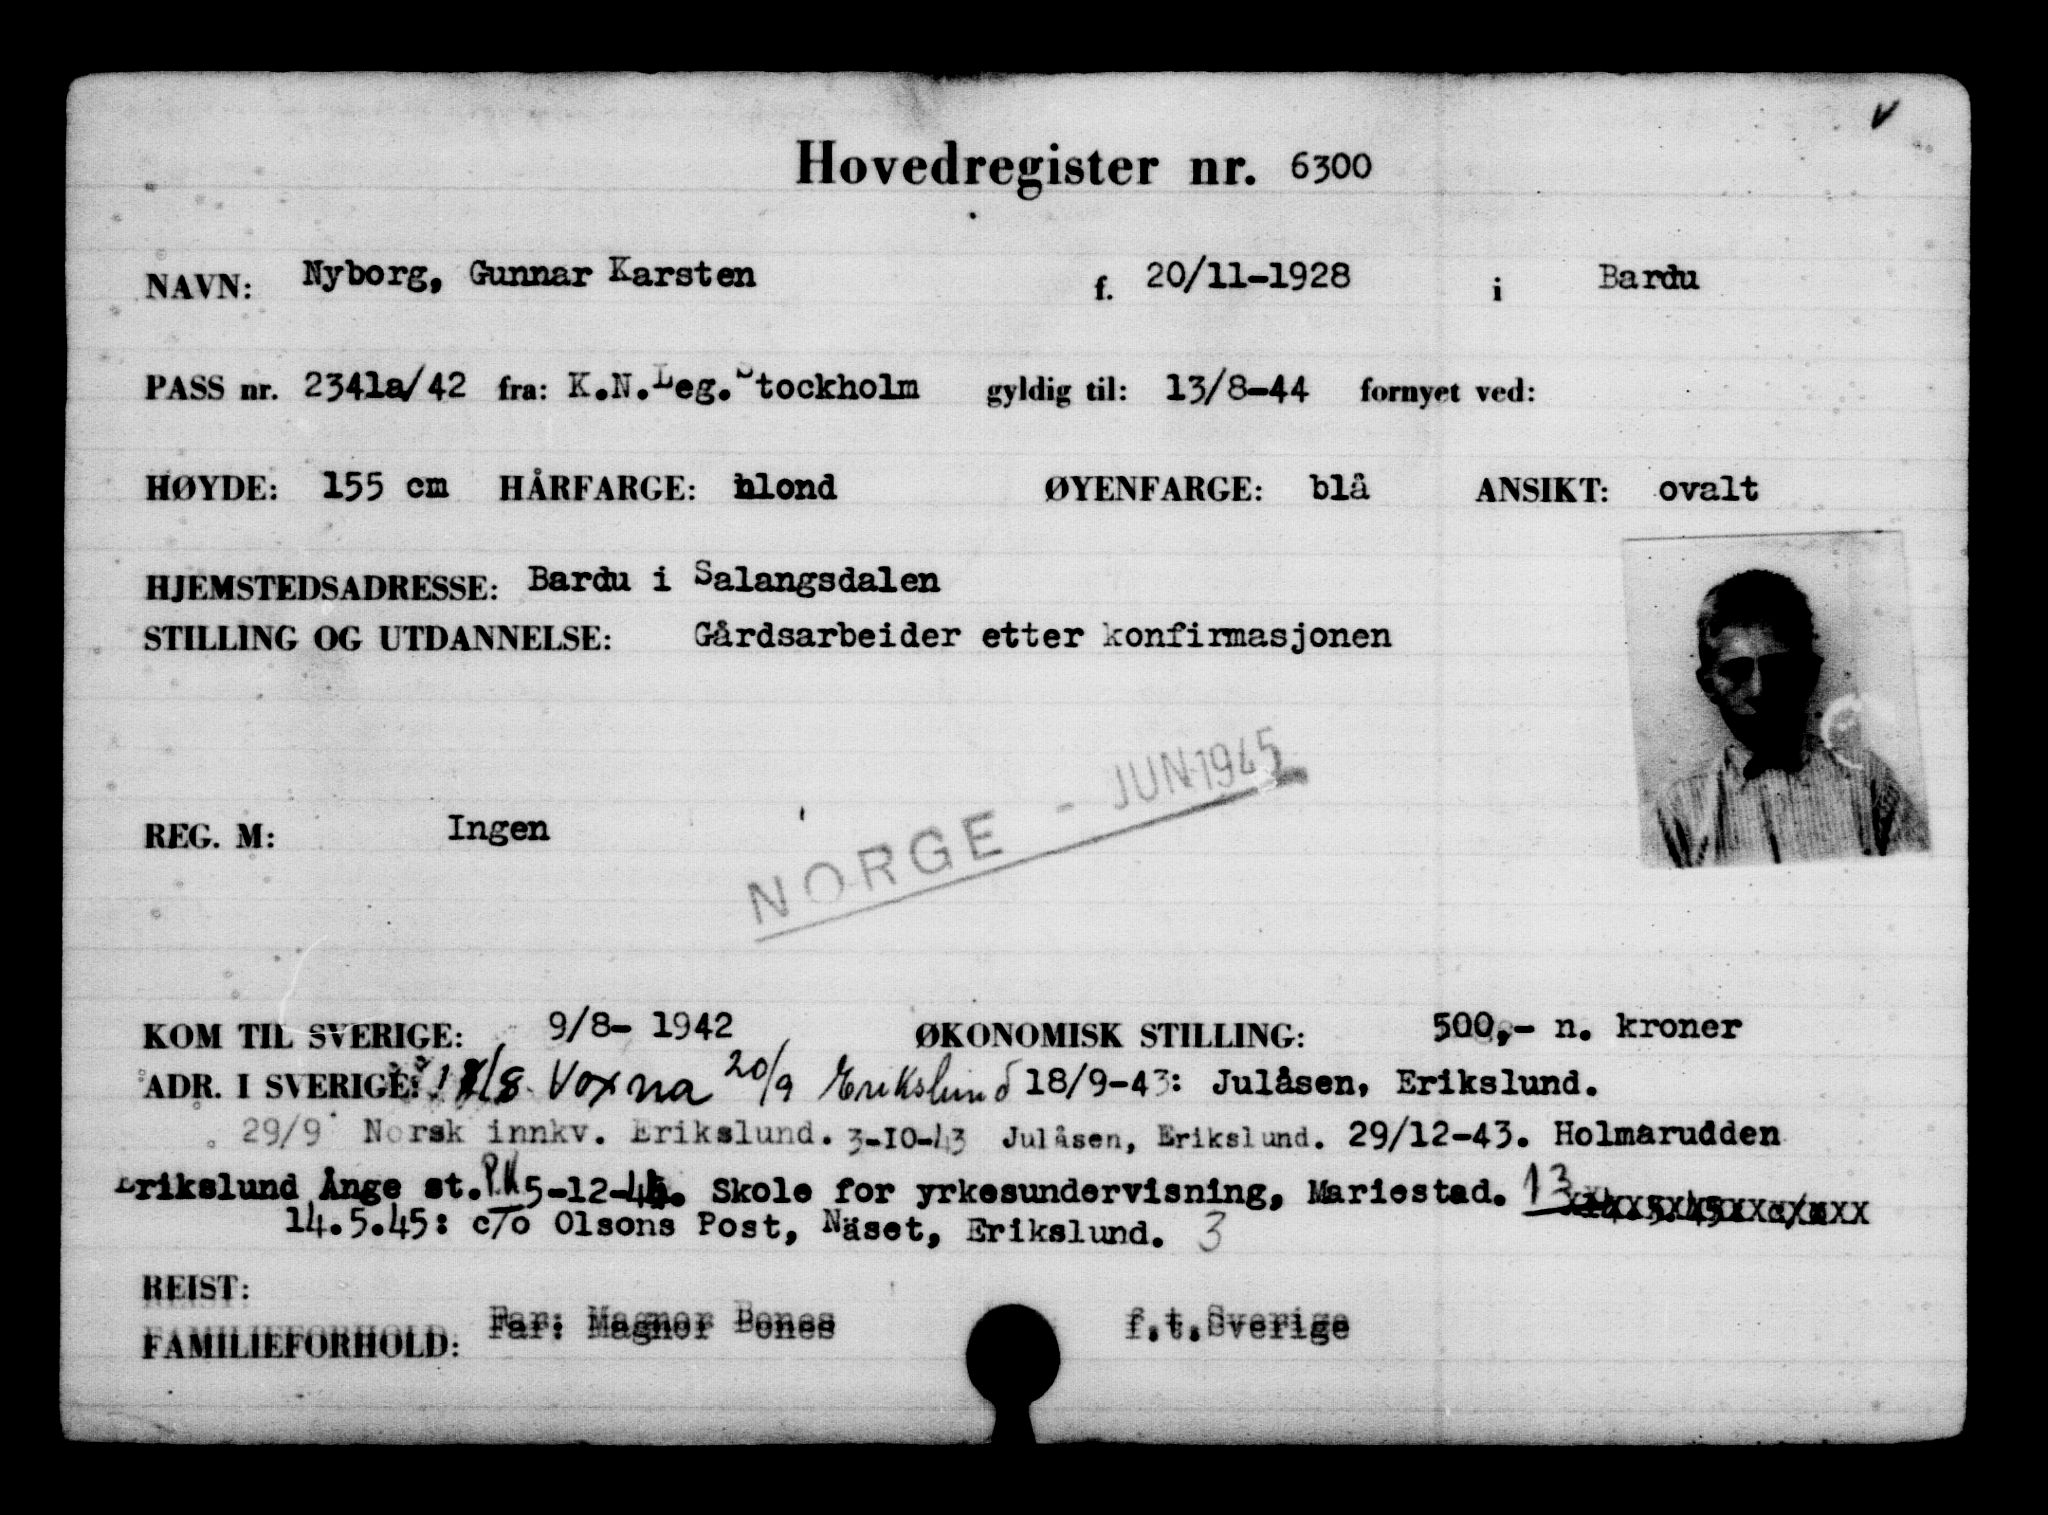 Hovedregister nr. 6300
NAVN: Nyborg, Gunnar Karsten f. 20/11-1928 i Bardu
PASS nr. 2341a/42 fra: K.N.Leg.Stockholm gyldig til: 13/8-44 fornyet ved:
HØYDE: 155 cm HÅRFARGE: blond ØYENFARGE: blå ANSIKT: ovalt
HJEMSTEDSADRESSE: Bardu i Salangsdalen
STILLING OG UTDANNELSE: Gårdsarbeider etter konfirmasjonen
NORGE - JUN 1945
REG. M: Ingen
KOM TIL SVERIGE: 9/8- 1942 ØKONOMISK STILLING: 500,- n. kroner
ADR. I SVERIGE: Voxna 20/9 Erikslund 18/9-43: Julåsen, Erikslund.
29/9 Norsk innkv. Erikslund. 3-10-43 Julåsen, Erikslund. 29/12-43. Holmarudden
Erikslund Ånge st. 5-12-44. Skole for yrkesundervisning, Mariestad. 13
14.5.45: c/o Olsons Post, Näset, Erikslund. 3
REIST:
FAMILIEFORHOLD: Far: Magnor Bones f.t.Sverige